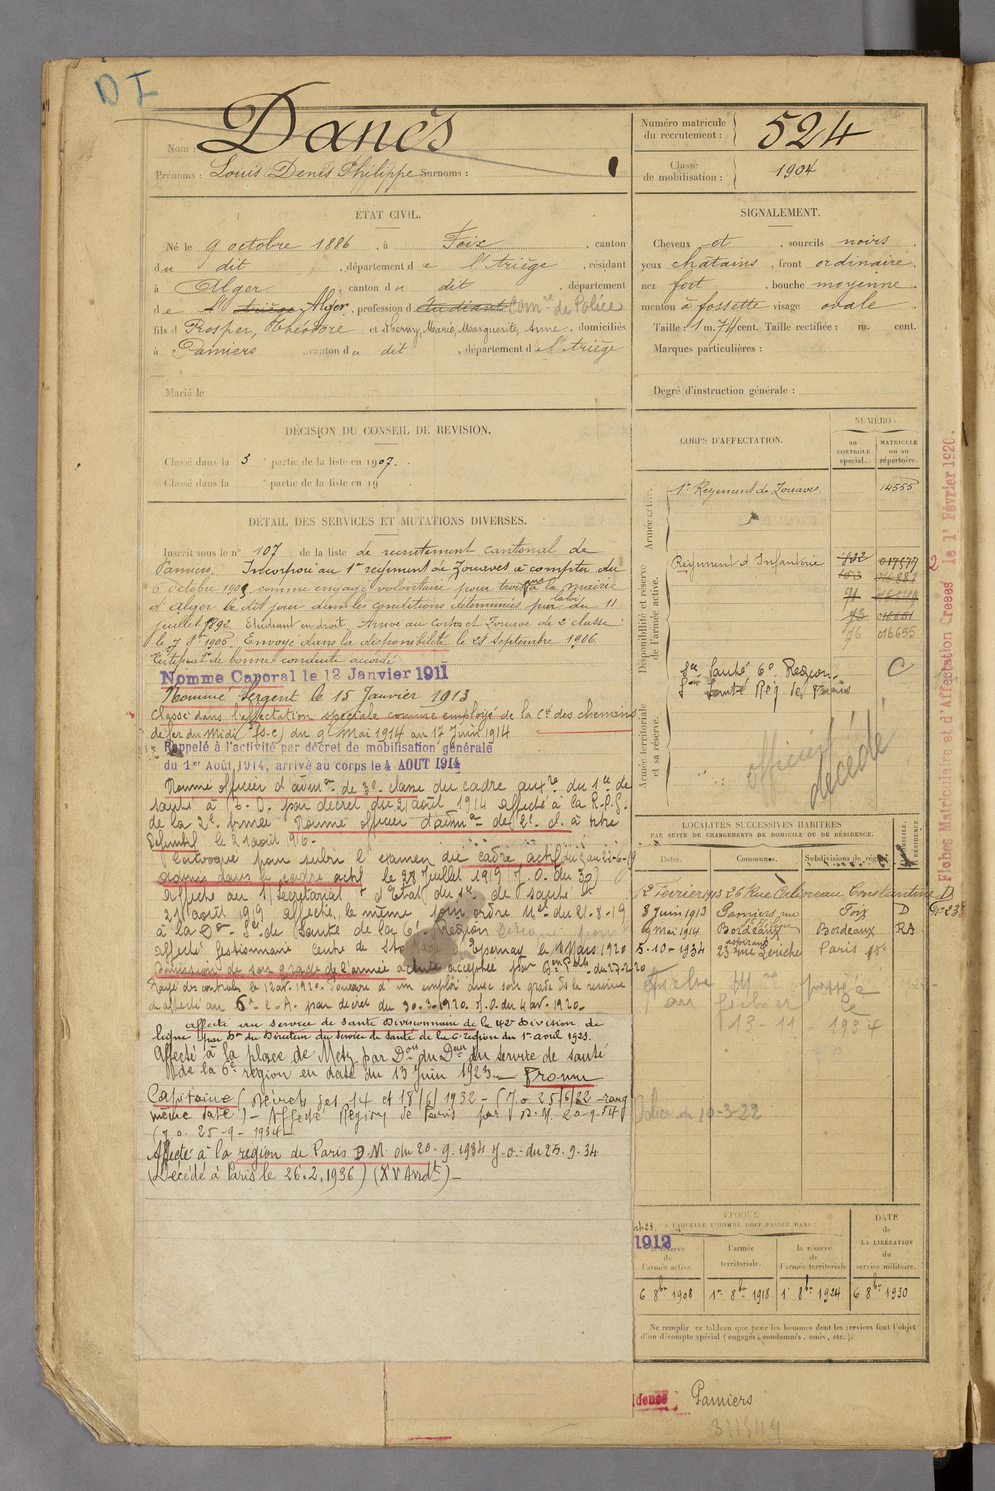 DI
Nom : Danés
Prénoms : Louis Denis Philippe Surnoms :
Numéro matricule du recrutement : 524
Classe de mobilisation : 1904
ÉTAT CIVIL.
Né le 9 octobre 1886, à Foix, canton
du dit, département de l'Ariège, résidant
à Alger, canton du dit, département
de l'Ariège Alger, profession d étudiant Comre de Police
fils de Prosper, Théodore et d Marie, Marguerite, Anne, domiciliés
à Pamiers canton du dit, département de l'Ariège
Marié le
SIGNALEMENT.
Cheveux et, sourcils noirs
yeux chatains, front ordinaire
nez fort, bouche moyenne
menton à fossette visage ovale
Taille : 1 m. 74 cent. Taille rectifiée : m. cent.
Marques particulières :
Degré d'instruction générale :
DÉCISION DU CONSEIL DE REVISION.
Classé dans la 3 partie de la liste en 1907.
Classé dans la partie de la liste en 19
DÉTAIL DES SERVICES ET MUTATIONS DIVERSES.
Inscrit sous le n° 107 de la liste de recrutement cantonal de
Pamiers. Incorporé au 1er régiment de Zouaves à compter du
6 octobre 1905, comme engagé volontaire pour trois ans à la mairie
d'Alger le dit jour dans les conditions déterminées par la loi du 11
juillet 1892 Etudiant en droit. Arrivé au corps et Zouave de 2e classe
le 7 8bre 1905. Envoyé dans la disponibilité le 28 septembre 1906.
Certificat de bonne conduite accordé
Nommé Caporal le 12 Janvier 1911
Nommé Sergent le 15 Janvier 1913
Classé dans l'affectation spéciale comme employé de la Cie des chemins
de fer du Midi (s.c) du 9 Mai 1914 au 17 Juin 1914
Rappelé à l'activité par décret de mobilisation générale
du 1er Août 1914, arrivé au corps le 4 AOUT 1914
Nommé officier d'admon de 3e classe du cadre auxre du de
santé à T.D. par décret du 21 août 1914 affecté à la
de la 2e armée Nommé officier d'admon de 2e cl. à titre
définitif le 2 août 916.
Convoqué pour subir l'examen du cadre actif
admis dans le cadre actif le 28 Juillet 1919 J.O. du 30
affecté au Secrétariat d'Etat du de santé le
21 août 1919 affecté, le même jour ordre Mel du 21-8-19
à la Don de Santé de la 6e Région
affecté gestionnaire centre de Epernay le 1 Mars 1920
Démission de son grade de l'armée active acceptée par
Rayé des contrôles le 12 avr. 1920. Pourvu d'un emploi avec son grade de la réserve
et affecté au 6e C.A. par décret du 30-3-1920. J.O. du 4 av. 1920.
affecté au service de santé Divisionnaire de la 42e Division de
ligne par Don du Directeur du Service de santé de la 6e région du 1er avril 1923.
Affecté à la place de Metz par Don du Deur du service de santé
de la 6e région en date du 13 juin 1923. Promu
Capitaine (Décrets des 14 et 18/6/1932 - (J.O. 25/6/32 rang
même date) - Affecté Région de Paris par D.M. 20-9-34
(J.O. 25-9-1934
Affecté à la région de Paris D.M. du 20-9-1934 J.O. du 25-9-34
(Décédé à Paris le 26.2.1936) (XV Arrdt)
CORPS D'AFFECTATION.
NUMÉRO :
au CONTRÔLE spécial.
MATRICULE ou au répertoire.
Armée active.
1er Régiment de Zouaves 14555
Disponibilité et réserve de l'armée active.
Régiment d'Infanterie 132 017577
153
71
73 016661
76 016655
Armée territoriale et sa réserve.
Son Santé 6e Région C
Son Santé Rég de Paris
officier
décédé
LOCALITÉS SUCCESSIVES HABITÉES
PAR SUITE DE CHANGEMENTS DE DOMICILE OU DE RÉSIDENCE.
Dates. Communes. Subdivisions de région. DOMICILE. RÉSIDENCE.
12 Février 1913 26 Rue Constantine D
8 Juin 1913 Pamiers Foix D
9 Mai 1914 Bordeaux Bordeaux RA
5-10-1934 23 rue Leriche Paris
passé
au fichier le
13-11 1934
10-3-22
ÉPOQUE
À LAQUELLE L'HOMME DOIT PASSER DANS :
DATE de LA LIBÉRATION du service militaire.
1912
la réserve de l'armée active.
l'armée territoriale.
la réserve de l'armée territoriale
6 8bre 1908 1er 8bre 1918 1er 8bre 1924 6 8bre 1930
Ne remplir ce tableau que pour les hommes dont les services font l'objet
d'un décompte spécial (engagés, condamnés, omis, etc.).
Pamiers
Fiches Matriculaire et d'Affectation Créées le 1er Février 1920.